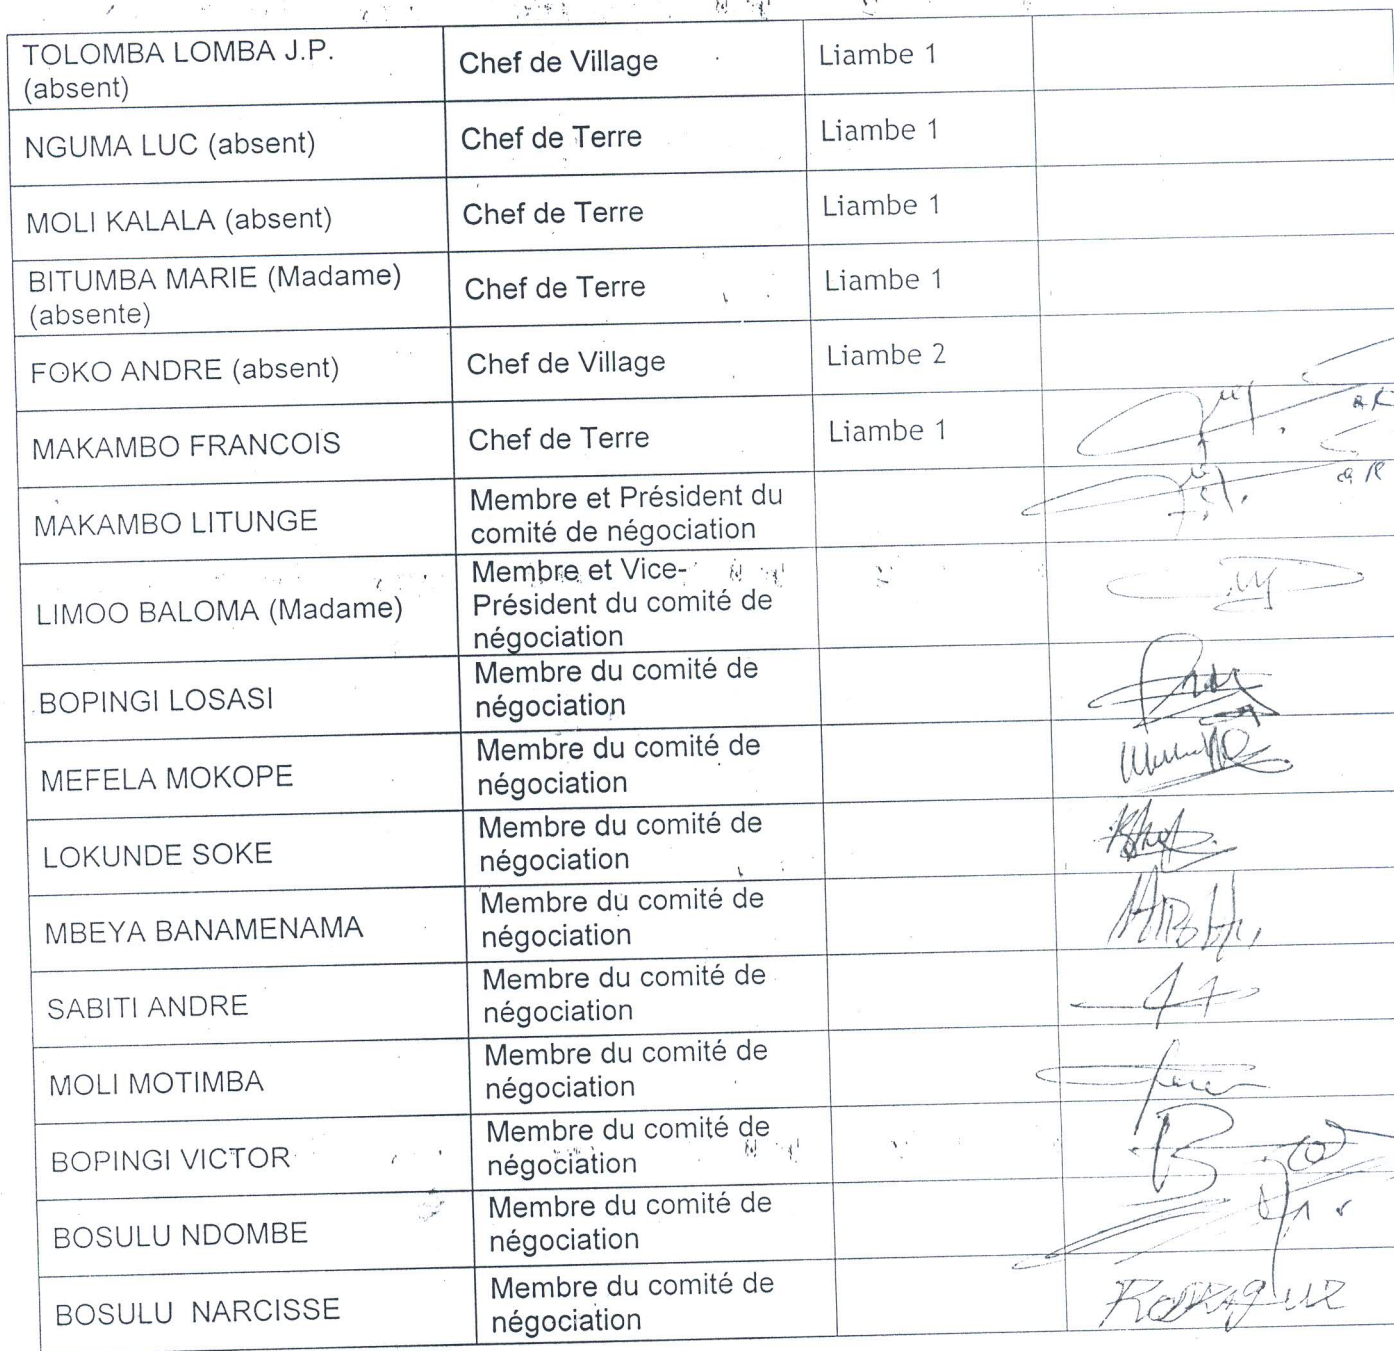 TOLOMBA LOMBA J.P.
(absent)
Chef de Village
Liambe 1
NGUMA LUC (absent)
Chef de Terre
Liambe 1
MOLI KALALA (absent)
Chef de Terre
Liambe 1
BITUMBA MARIE (Madame)
(absente)
Chef de Terre
Liambe 1
FOKO ANDRE (absent)
Chef de Village
Liambe 2
MAKAMBO FRANCOIS
Chef de Terre
Liambe 1
MAKAMBO LITUNGE
Membre et Président du
comité de négociation
LIMOO BALOMA (Madame)
Membre et Vice-
Président du comité de
négociation
BOPINGI LOSASI
Membre du comité de
négociation
MEFELA MOKOPE
Membre du comité de
négociation
LOKUNDE SOKE
Membre du comité de
négociation
MBEYA BANAMENAMA
Membre du comité de
négociation
SABITI ANDRE
Membre du comité de
négociation
MOLI MOTIMBA
Membre du comité de
négociation
BOPINGI VICTOR
Membre du comité de
négociation
BOSULU NDOMBE
Membre du comité de
négociation
BOSULU NARCISSE
Membre du comité de
négociation